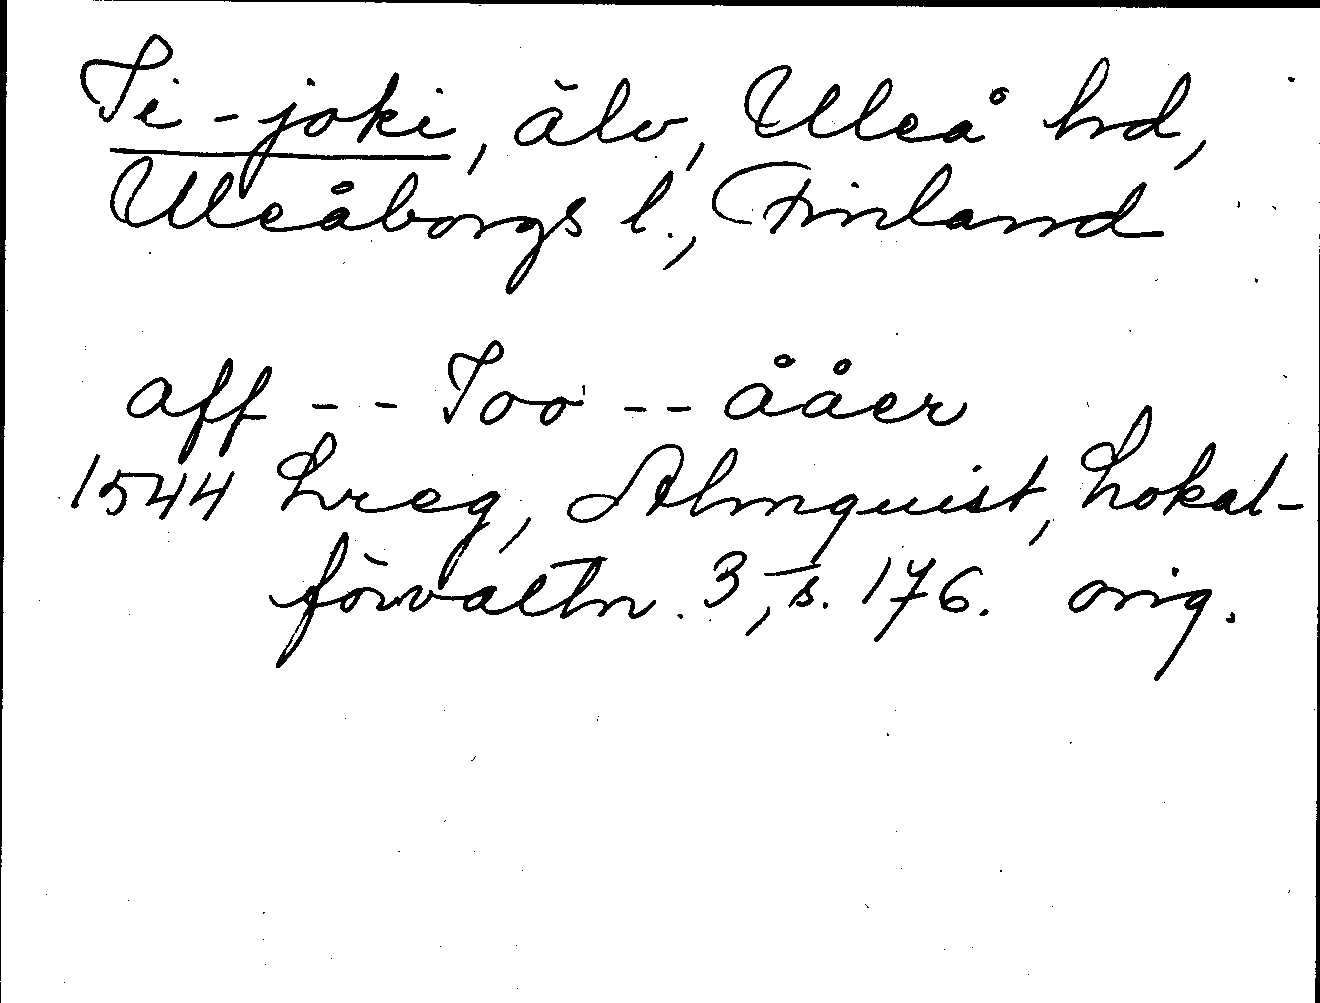 Ii-joki, älv, Uleå hrd,
Uleåborgs l., Finland
aff -- Ioo -- ååer
1544 Lreg, Almquist, Lokal-
förvaltn. 3, s. 176. orig.